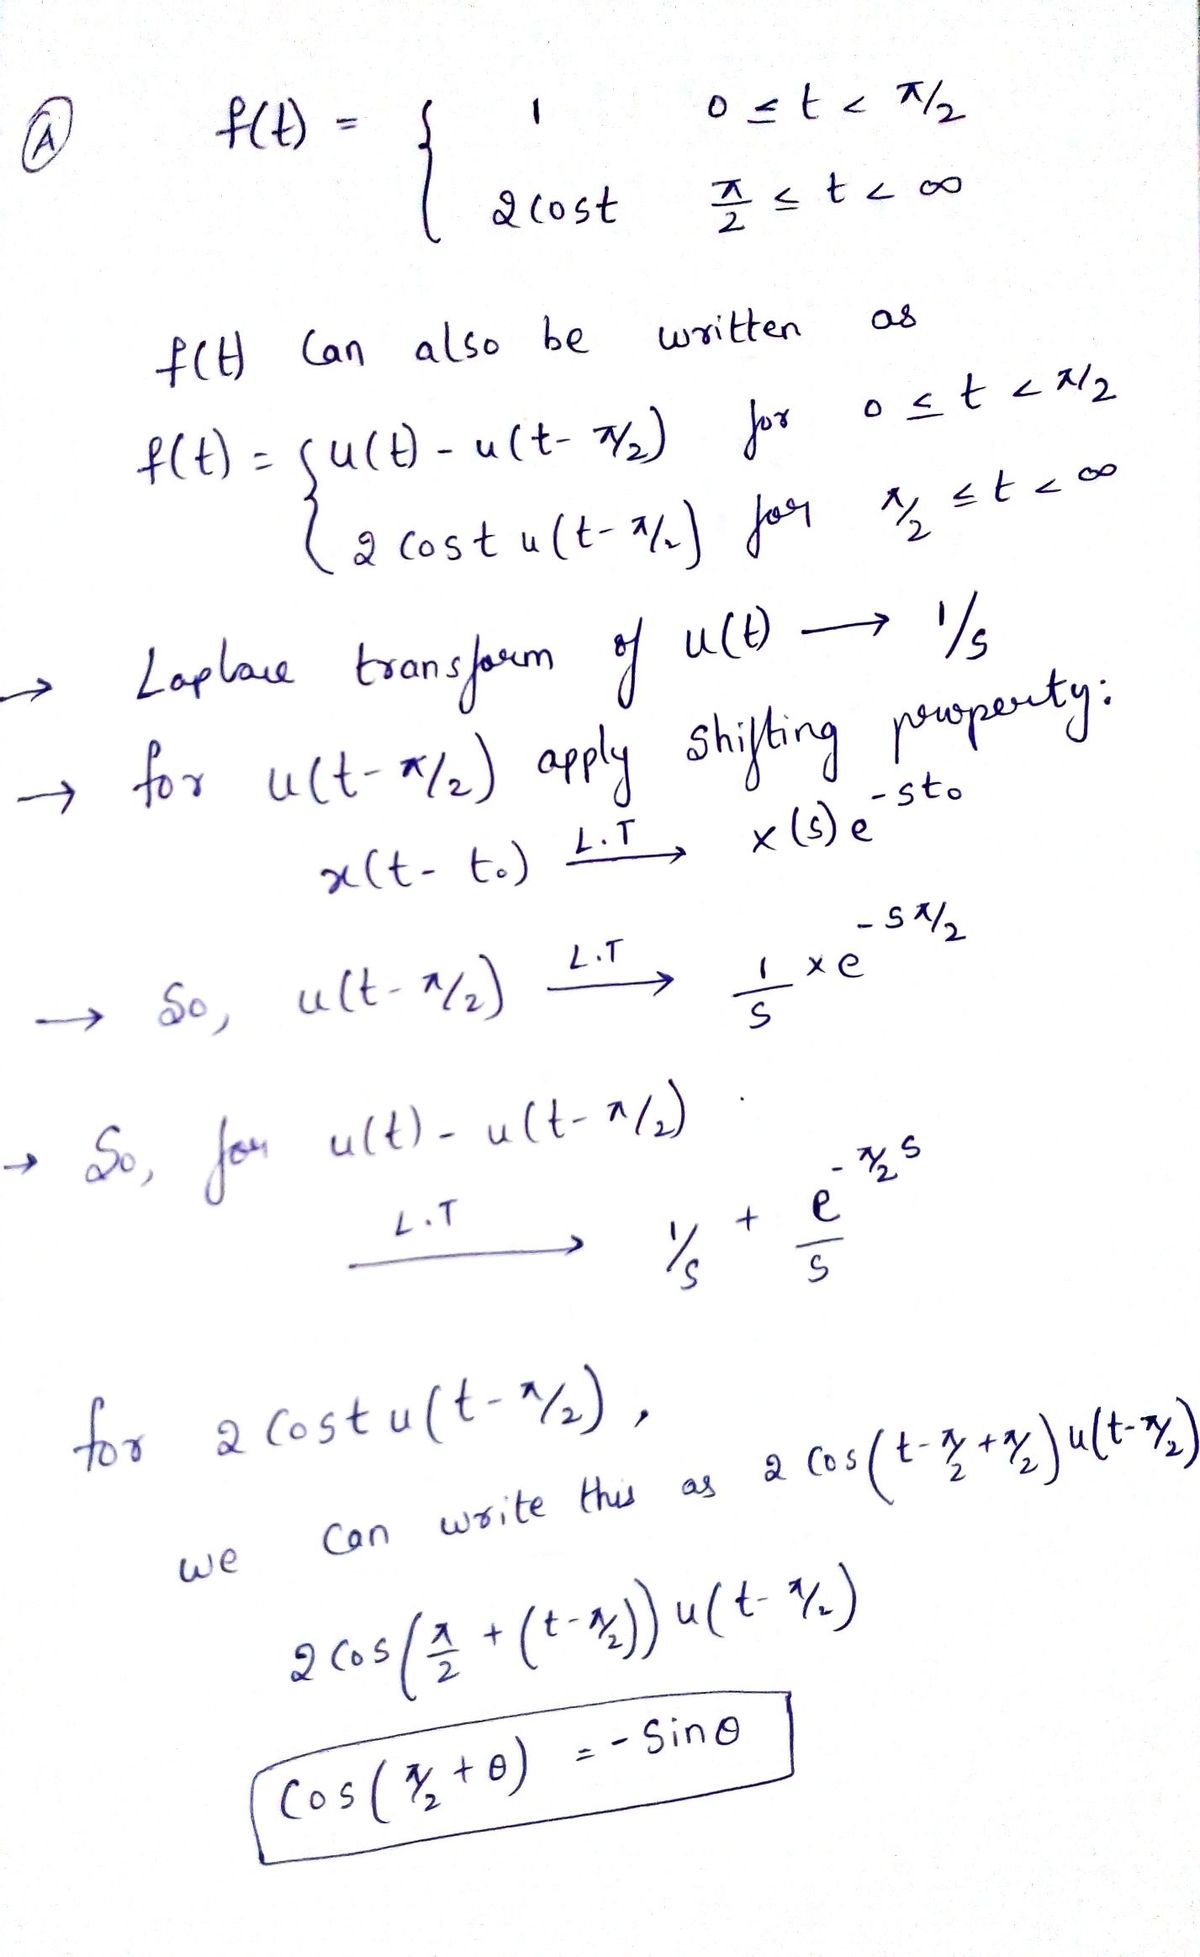 Ⓐ f(t) = { 1 0 ≤ t < π/2
2cost π/2 ≤ t < ∞
f(t) can also be written as
f(t) = { u(t) - u(t - π/2) for 0 ≤ t < π/2
2 cost u(t - π/2) for π/2 ≤ t < ∞
→ Laplace transform of u(t) → 1/s
→ for u(t - π/2) apply shifting property:
x(t - t₀) L.T→ x(s) e^-st₀
→ So, u(t - π/2) L.T→ 1/s × e^-sπ/2
→ So, for u(t) - u(t - π/2)
L.T→ 1/s + e^-π/2 s / s
for 2 cost u(t - π/2),
we can write this as 2 cos(t - π/2 + π/2) u(t - π/2)
2 cos(π/2 + (t - π/2)) u(t - π/2)
cos(π/2 + θ) = - sinθ